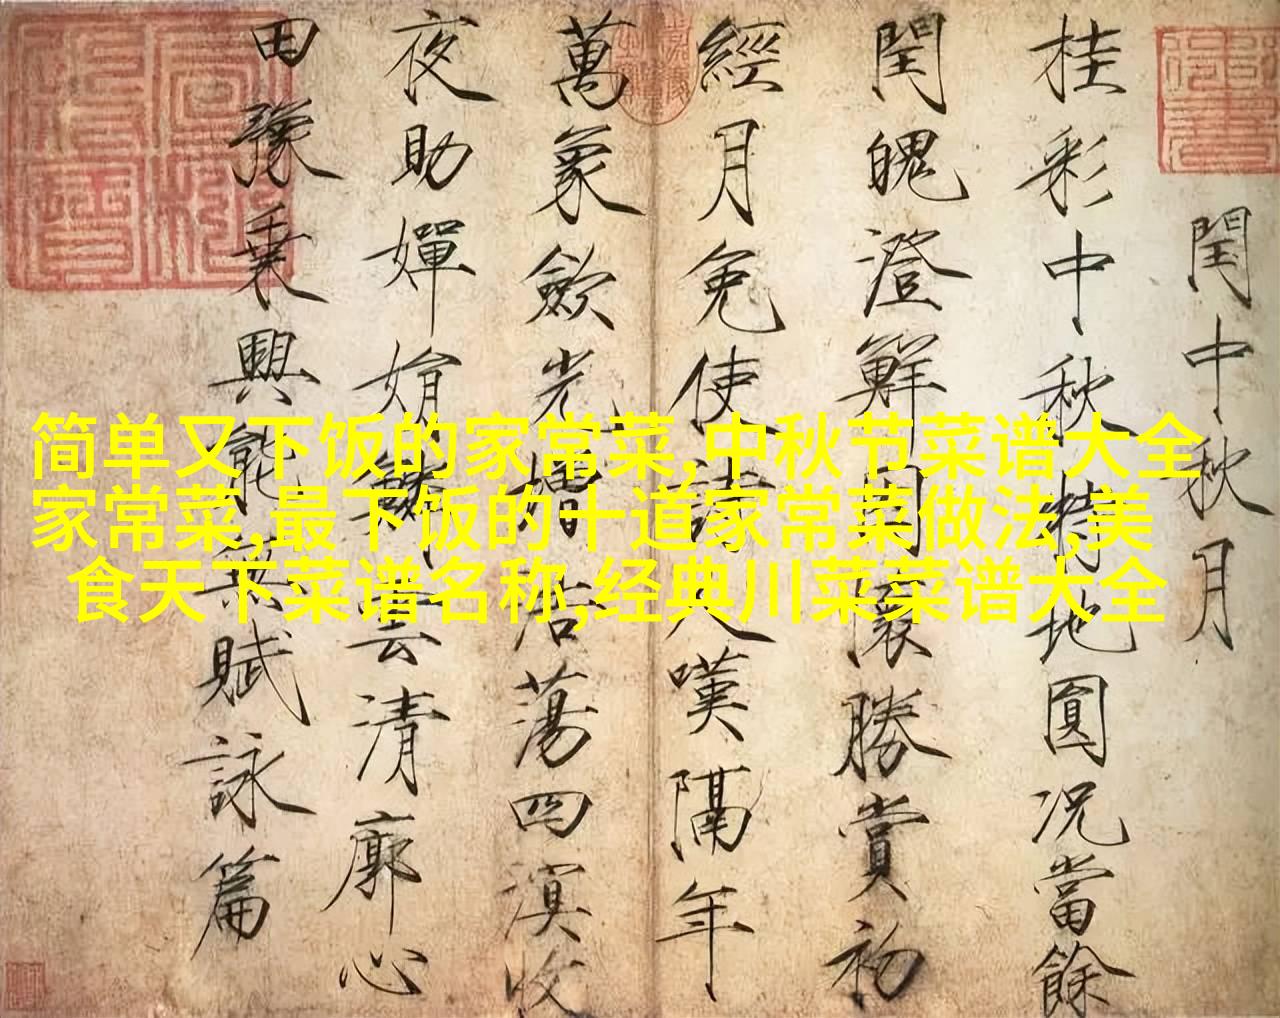 閏中秋月
桂彩中秋特地圓況當餘
閏魄澄鮮因懷勝賞初
經月免使詩人嘆隔年
萬象歛光增浩蕩四溟收
夜助嬋娟鱗雲清廓心
田豫乗興能無賦詠篇
简单又下饭的家常菜,中秋节菜谱大全
家常菜,最下饭的十道家常菜做法,美
食天下菜谱名称,经典川菜菜谱大全